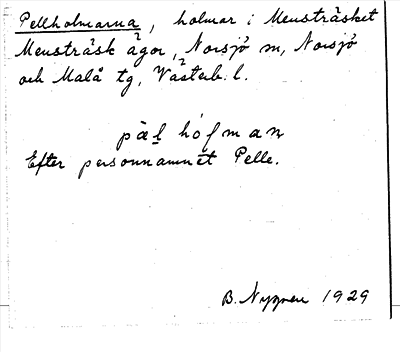 Pellholmarna, holmar i Mensträsket
Mensträsk ägor, Norsjö sn, Norsjö
och Malå tg, Västerb. l.
Efter personnamnet Pelle.
B. Nygren 1929